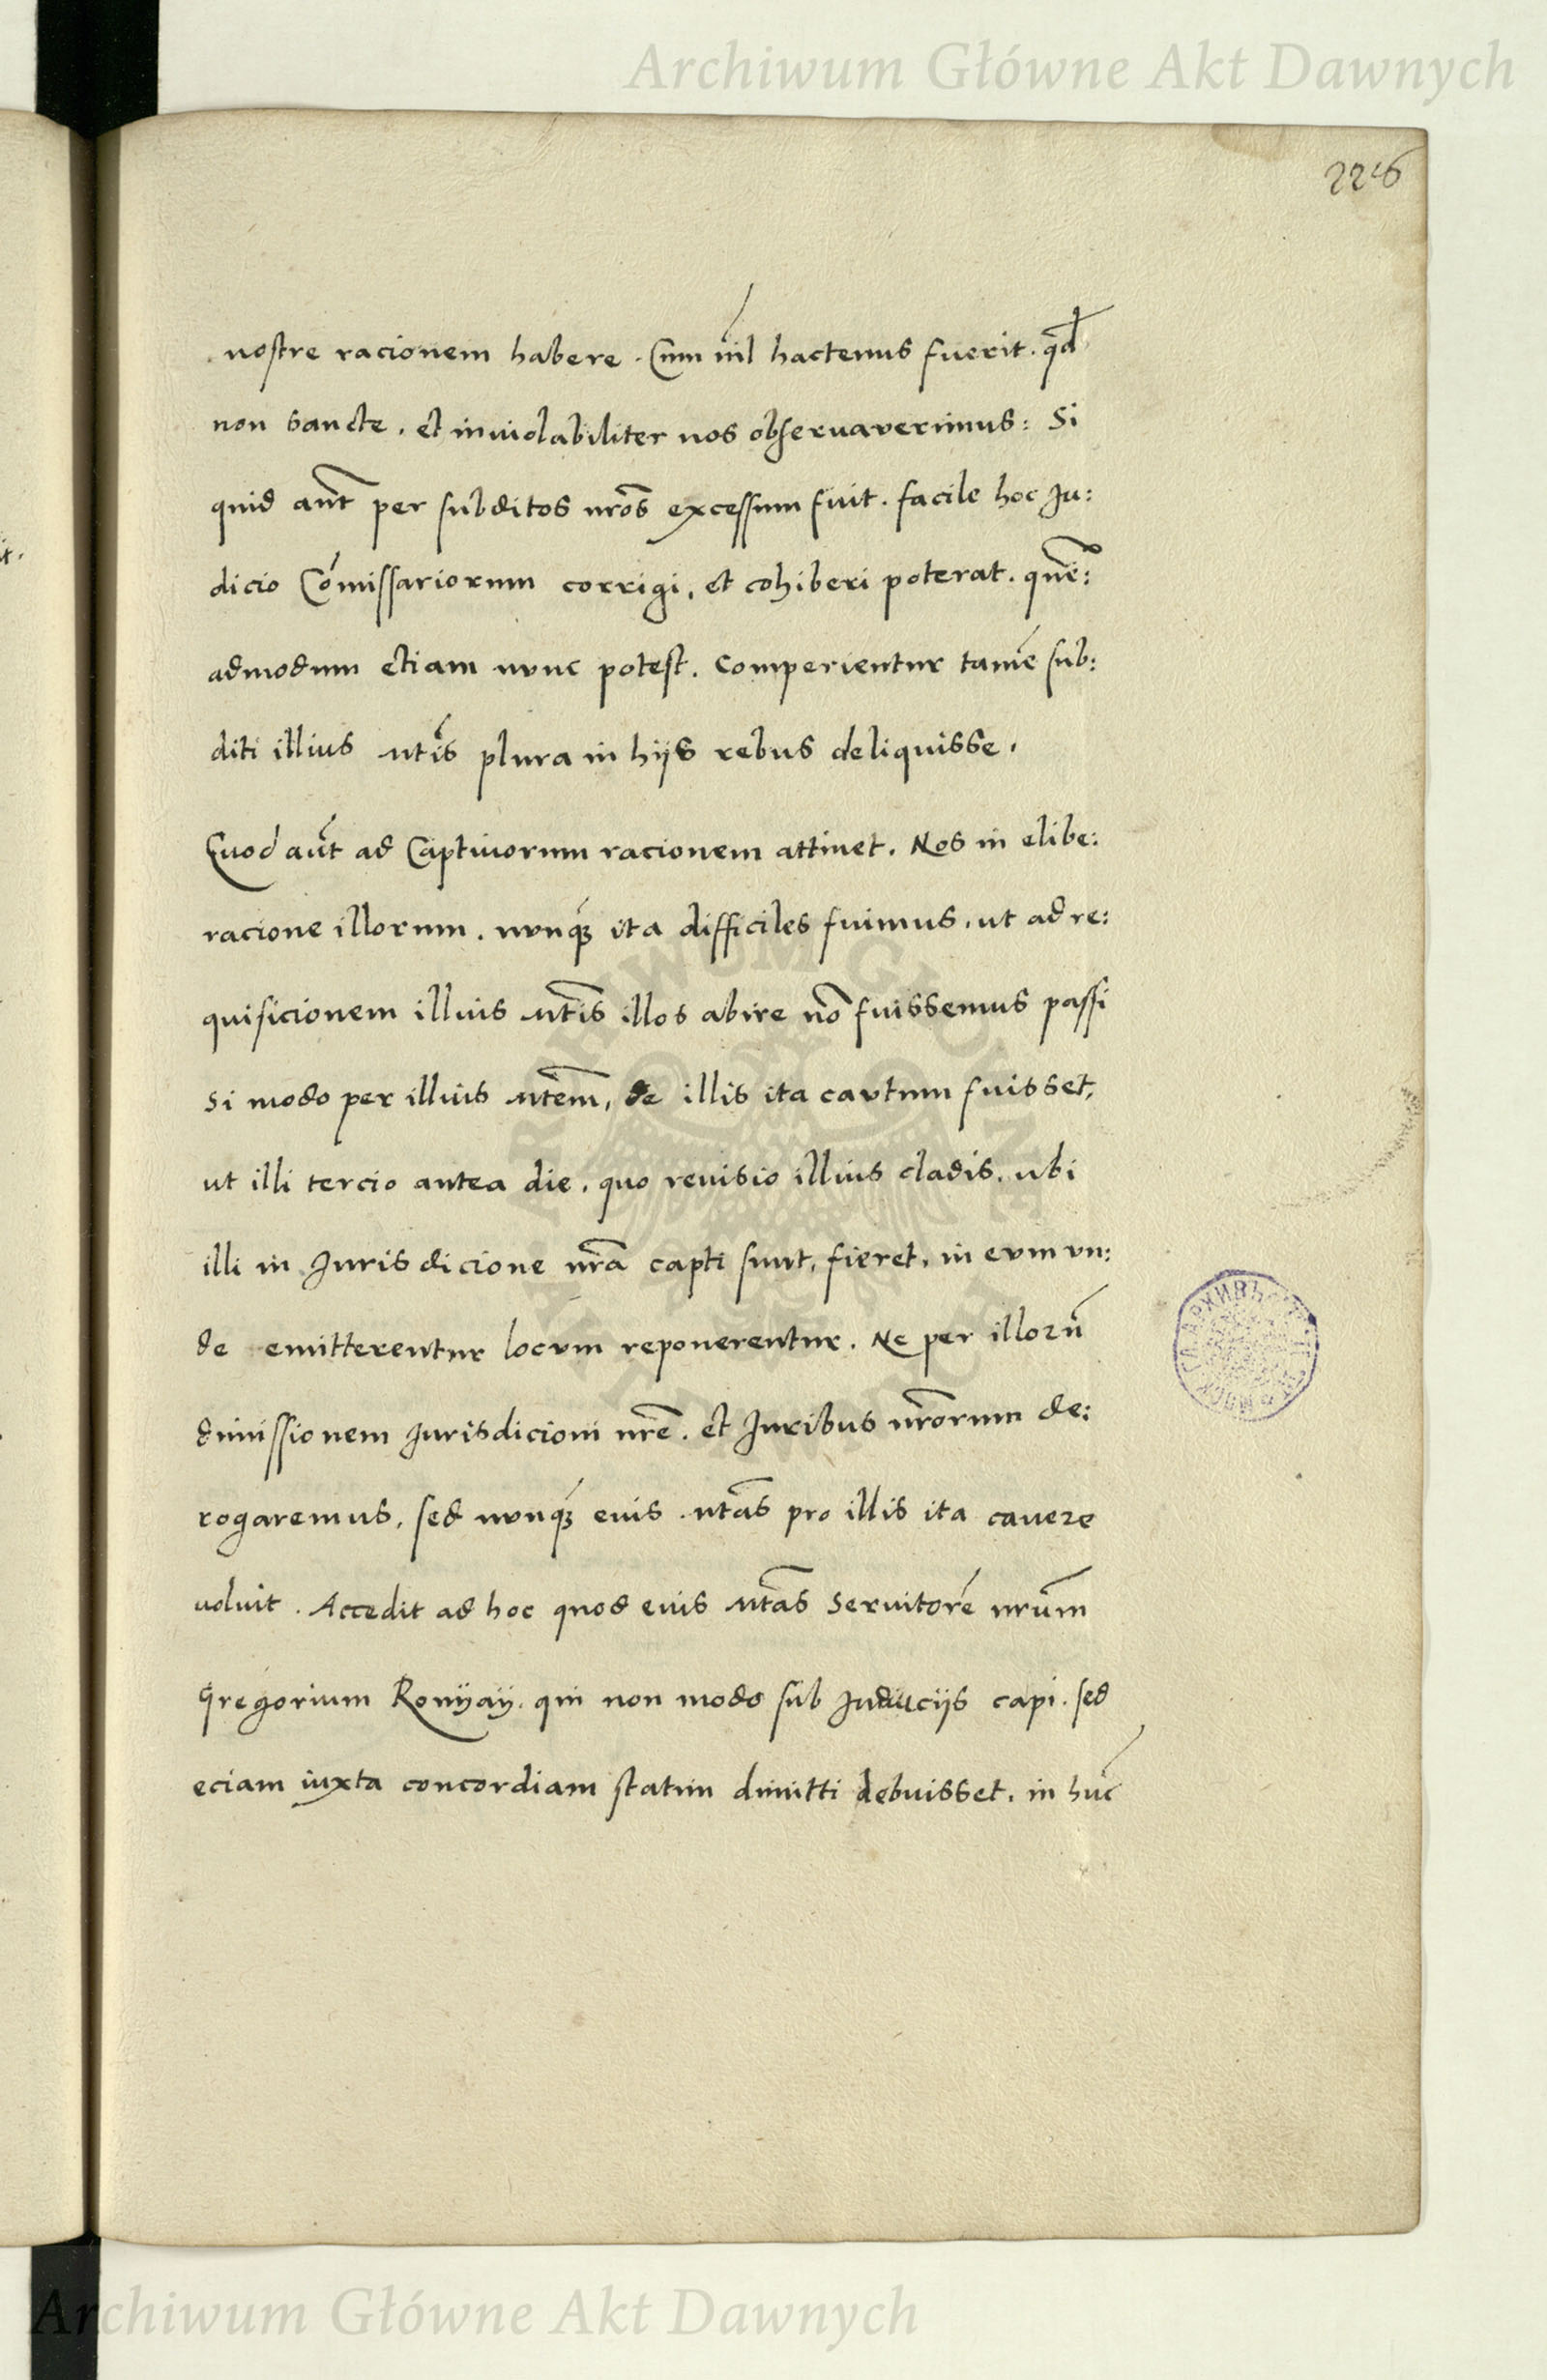 Archiwum Główne Akt Dawnych
226
nostre racionem habere. Cum nil hactenus fuerit. qd
non sancte. et inviolabiliter nos observaverimus: Si
quid aut per subditos nros excessum fuit. facile hoc Ju:
dicio Comissariorum corrigi, et cohiberi poterat. quē:
admodum etiam nunc potest. Comperientur tamē sub:
diti illius Mtis plura in hijs rebus deliquisse.
Quod aut ad Captivorum racionem attinet. Nos in elibe:
racione illorum. nunq3 ita difficiles fuimus, ut ad re:
quisicionem illius Mtis illos abire nō fuissemus passi
si modo per illius Mtem, de illis ita cautum fuisset,
ut illi tercio antea die. quo revisio illius cladis. ubi
illi in Jurisdicione nra capti sunt, fieret, in eum un:
de emitterentur locum reponerentur. Ne per illorū
dimissionem Jurisdicioni nre. et Juribus nrorum de:
rogaremus, sed nunq3 eius Mtas pro illis ita cavere
voluit. Accedit ad hoc quod eius Mtas Servitorē nrum
Gregorium Ronyay. qui non modo sub Induciis capi. sed
eciam iuxta concordiam statim dimitti debuisset. in hūc
Archiwum Główne Akt Dawnych